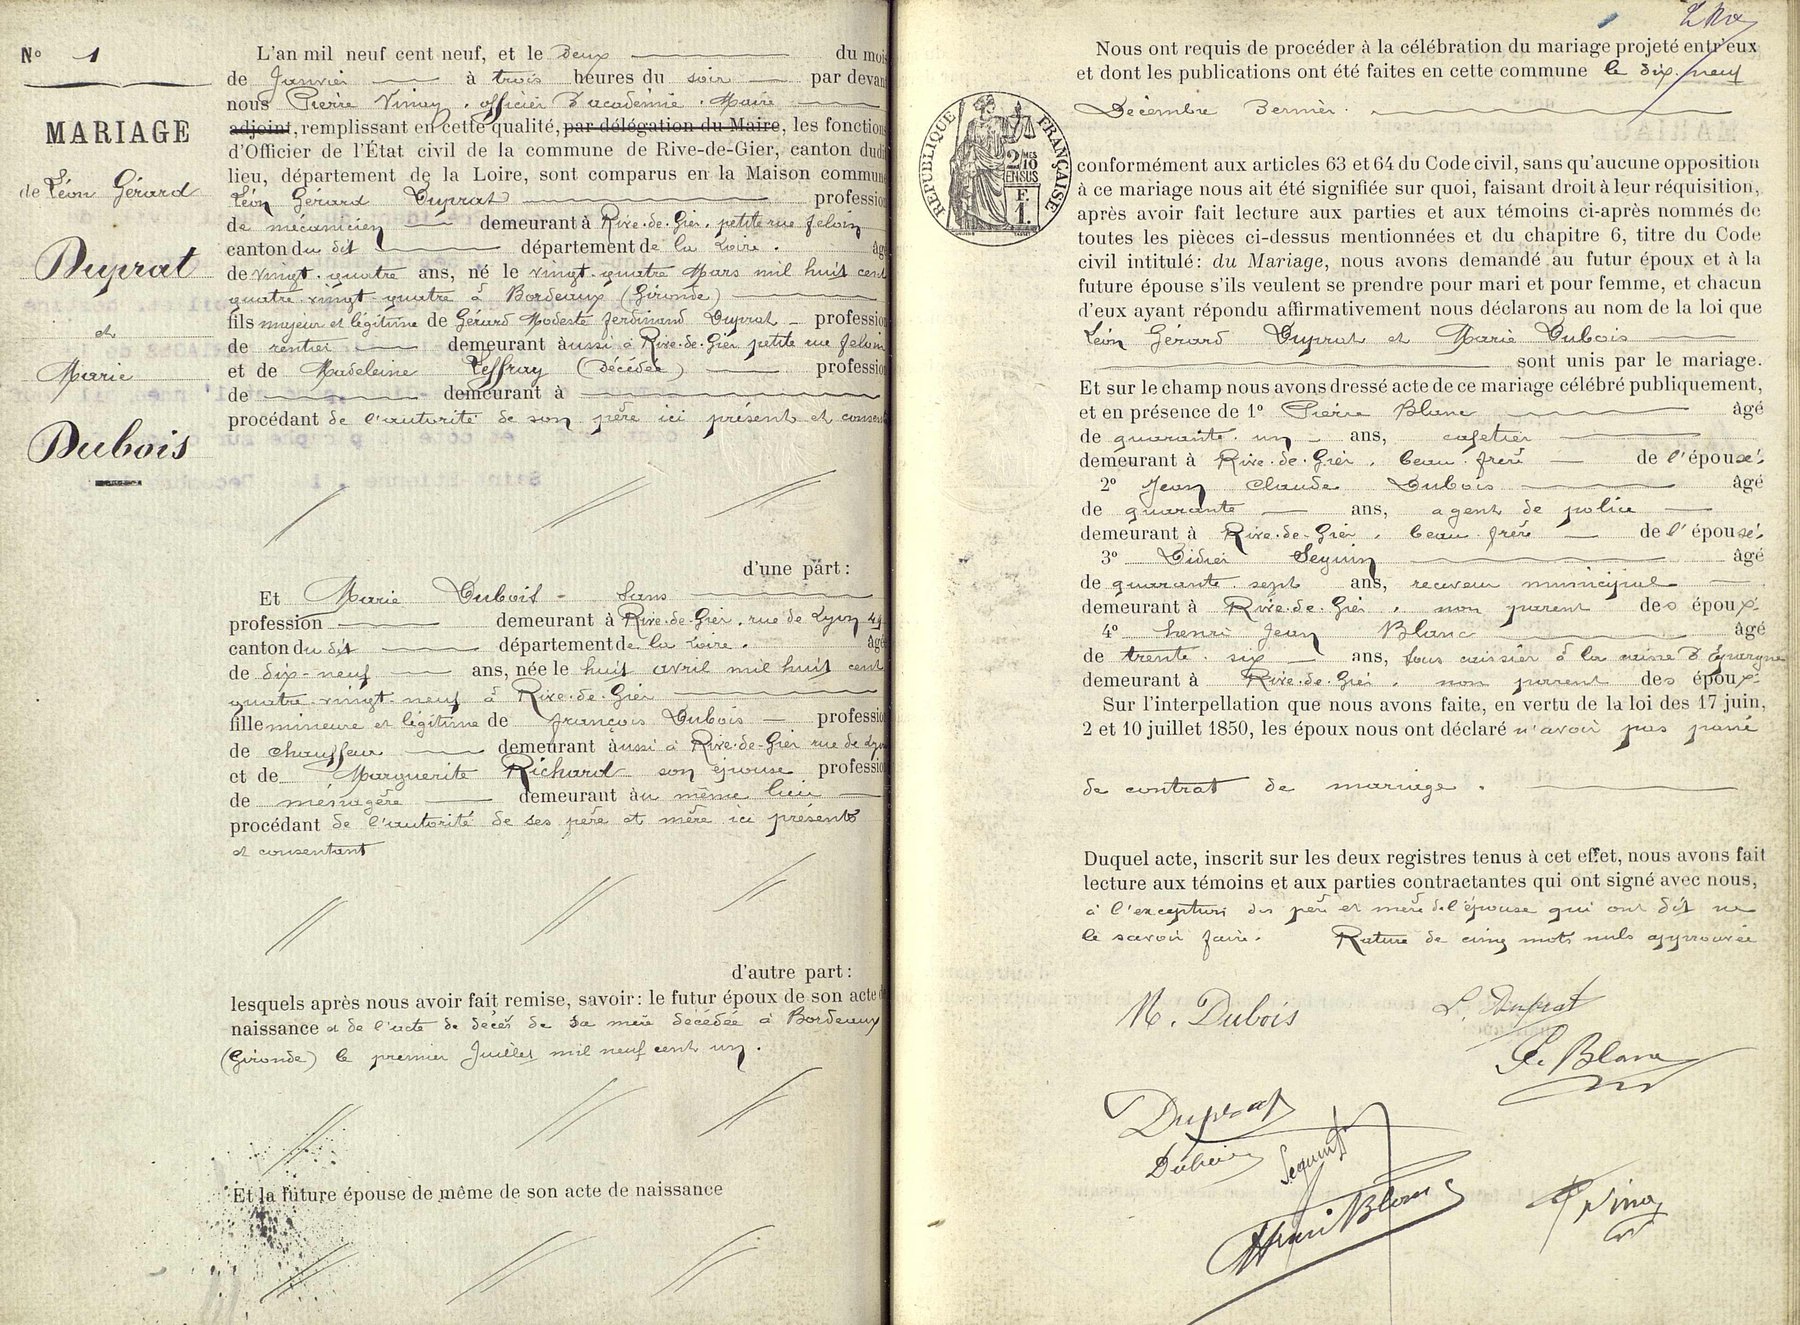 N° 1
MARIAGE
de Léon Gérard
Duprat
et
Marie
Dubois
L'an mil neuf cent neuf, et le Deux du mois
de Janvier à trois heures du soir par devant
nous Pierre Vinay, officier d'académie, Maire
adjoint, remplissant en cette qualité, par délégation du Maire, les fonctions
d'Officier de l'État civil de la commune de Rive-de-Gier, canton dudit
lieu, département de la Loire, sont comparus en la Maison commune
Léon Gérard Duprat profession
de mécanicien demeurant à Rive-de-Gier, petite rue Feloin
canton du dit département de la Loire. âgé
de vingt-quatre ans, né le vingt-quatre Mars mil huit cent
quatre-vingt-quatre à Bordeaux (Gironde)
fils majeur et légitime de Gérard Modeste Ferdinand Duprat profession
de rentier demeurant aussi à Rive-de-Gier petite rue Feloin
et de Madeleine Leffray (Décédée) profession
de demeurant à
procédant de l'autorité de son père ici présent et consent
d'une part :
Et Marie Dubois - Sans
profession demeurant à Rive-de-Gier, rue de Lyon
canton du dit département de la Loire. âgé
de dix-neuf ans, née le huit avril mil huit cent
quatre-vingt-neuf à Rive-de-Gier
fille mineure et légitime de François Dubois profession
de chauffeur demeurant aussi à Rive-de-Gier rue de Lyon
et de Marguerite Richard son épouse profession
de ménagère demeurant au même lieu
procédant de l'autorité de ses père et mère ici présents
et consentant
d'autre part :
lesquels après nous avoir fait remise, savoir : le futur époux de son acte de
naissance et de l'acte de décès de sa mère décédée à Bordeaux
(Gironde) le premier Juillet mil neuf cent un.
Et la future épouse de même de son acte de naissance
Nous ont requis de procéder à la célébration du mariage projeté entr'eux
et dont les publications ont été faites en cette commune le dix-neuf
Décembre Dernier.
RÉPUBLIQUE FRANÇAISE
2 MES 10
EN SUS
F.
1.
conformément aux articles 63 et 64 du Code civil, sans qu'aucune opposition
à ce mariage nous ait été signifiée sur quoi, faisant droit à leur réquisition,
après avoir fait lecture aux parties et aux témoins ci-après nommés de
toutes les pièces ci-dessus mentionnées et du chapitre 6, titre du Code
civil intitulé : du Mariage, nous avons demandé au futur époux et à la
future épouse s'ils veulent se prendre pour mari et pour femme, et chacun
d'eux ayant répondu affirmativement nous déclarons au nom de la loi que
Léon Gérard Duprat et Marie Dubois
sont unis par le mariage.
Et sur le champ nous avons dressé acte de ce mariage célébré publiquement,
et en présence de 1° Pierre Blanc âgé
de quarante-un ans, cafetier
demeurant à Rive-de-Gier, beau-frère de l'épouse.
2° Jean Claude Dubois âgé
de quarante ans, agent de police
demeurant à Rive-de-Gier, beau frère de l'épouse.
3° Didier Seguin âgé
de quarante-sept ans, receveur municipal
demeurant à Rive-de-Gier, non parent des époux
4° henri Jean Blanc âgé
de trente-six ans, sous caissier à la caisse d'Epargne
demeurant à Rive-de-Gier, non parent des époux
Sur l'interpellation que nous avons faite, en vertu de la loi des 17 juin,
2 et 10 juillet 1850, les époux nous ont déclaré n'avoir pas passé
de contrat de mariage.
Duquel acte, inscrit sur les deux registres tenus à cet effet, nous avons fait
lecture aux témoins et aux parties contractantes qui ont signé avec nous,
à l'exception des père et mère de l'épouse qui ont dit ne
le savoir faire. Rature de cinq mots nuls approuvée
M. Dubois L. Duprat
P. Blanc
Duprat
Dubois Seguin
Henri Blanc P Vinay